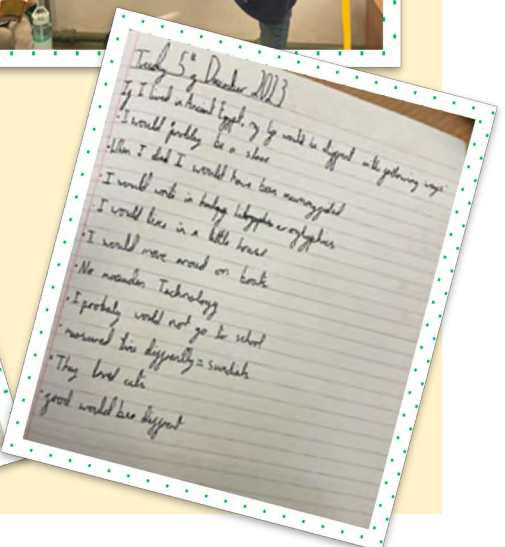 Tuesday 5th December 2023
If I lived in Ancient Egypt, my life would be different in the following ways:
• I would probably be a slave
• When I died I would have been mummyfied
• I would write in
• I would live in a little house
• I would move around on boats
• No mordern Technology
• I probaly would not go to school
• measured time differently = sundials
• They loved cats
• food would be different